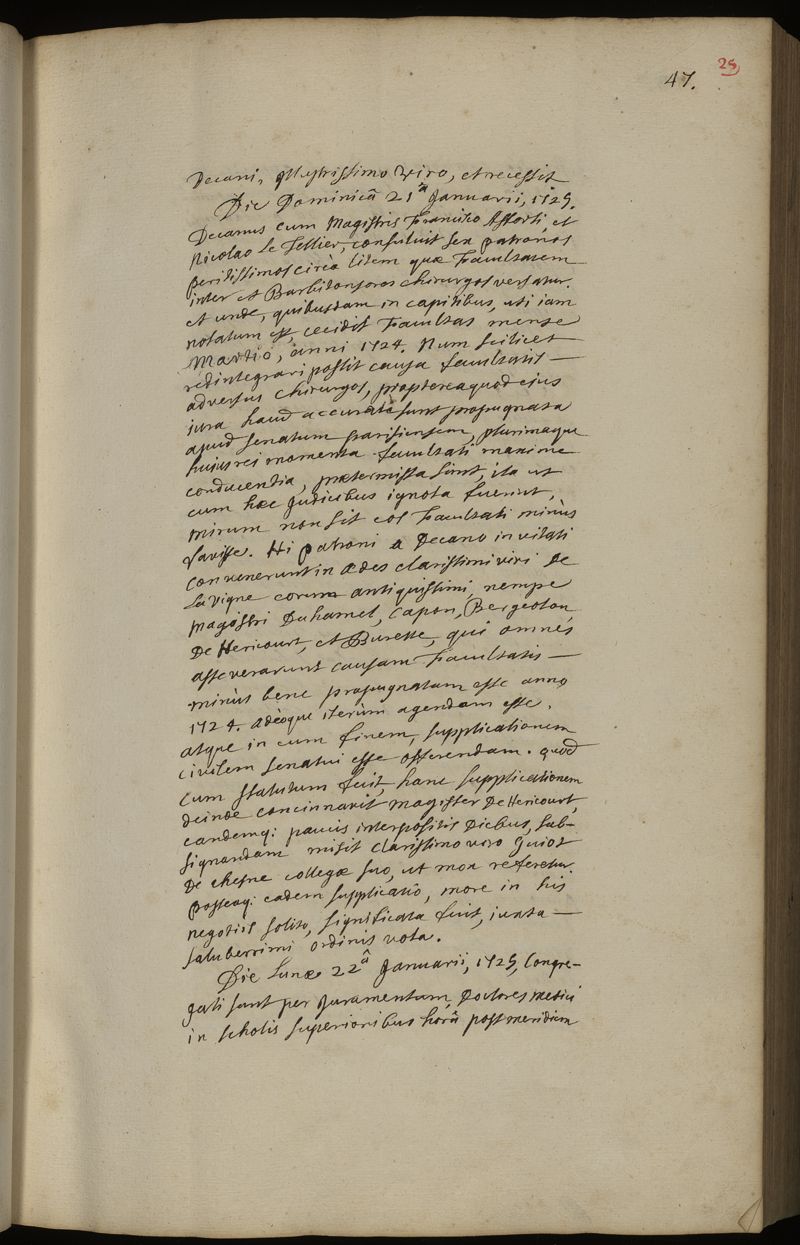 47.
25
Decani, Illustrissimo Viro, et recessit
Die Dominicâ 21ª Januarii, 1725.
Decanus cum Magistris Francisco Afforti, et
Nicolao Le Tellier, consuluit sex patronos
peritissimos circà litem quæ Facultatem
inter et Barbitonsores chirurgos versatur.
et unde, quibusdam in capitibus, uti iam
notatum est, cecidit Facultas mense
Martio, anni 1724. Num scilicet
redintegrari possit causa facultatis —
adversus chirurgos, propterea quod ejus
jura haud accuratè sunt propugnata
apud senatum parisiensem, plurimaque
hujus rei momenta facultati maxime
conducentia, prætermissa sint, ita ut
cum hæc Judicibus ignota fuerint,
mirum non sit eos Facultati minùs
favisse. Hi patroni a Decano invitati
convenerunt in ædes clarissimi viri De
La Vigne eorum antiquissimi, nempe
Magistri Duhamel, Capon, Bergeoton
De Hericourt, et Burette, qui omnes
asseverarunt causam Facultatis —
minùs bene propugnatam esse anno
1724. adeòque iterùm agendam esse.
atque in eum finem, supplicationem
civilem senatui esse offerendam. quod
cum statutum fuit, hanc supplicationem
deinde concinnavit magister De Hericourt,
eandemq: paucis interpositis Diebus, sub-
signandam misit clarissimo viro Guiot
De chesne collegæ suo, ut mox referetur
posteaq: eadem supplicatio, more in his
negotiis solito, significata fuit, iuxta —
saluberrimi ordinis vota.
Die Lunæ 22â Januarii, 1725, Congre-
gati sunt per Juramentum, Doctores medici
in scholis superioribus horâ post meridiem